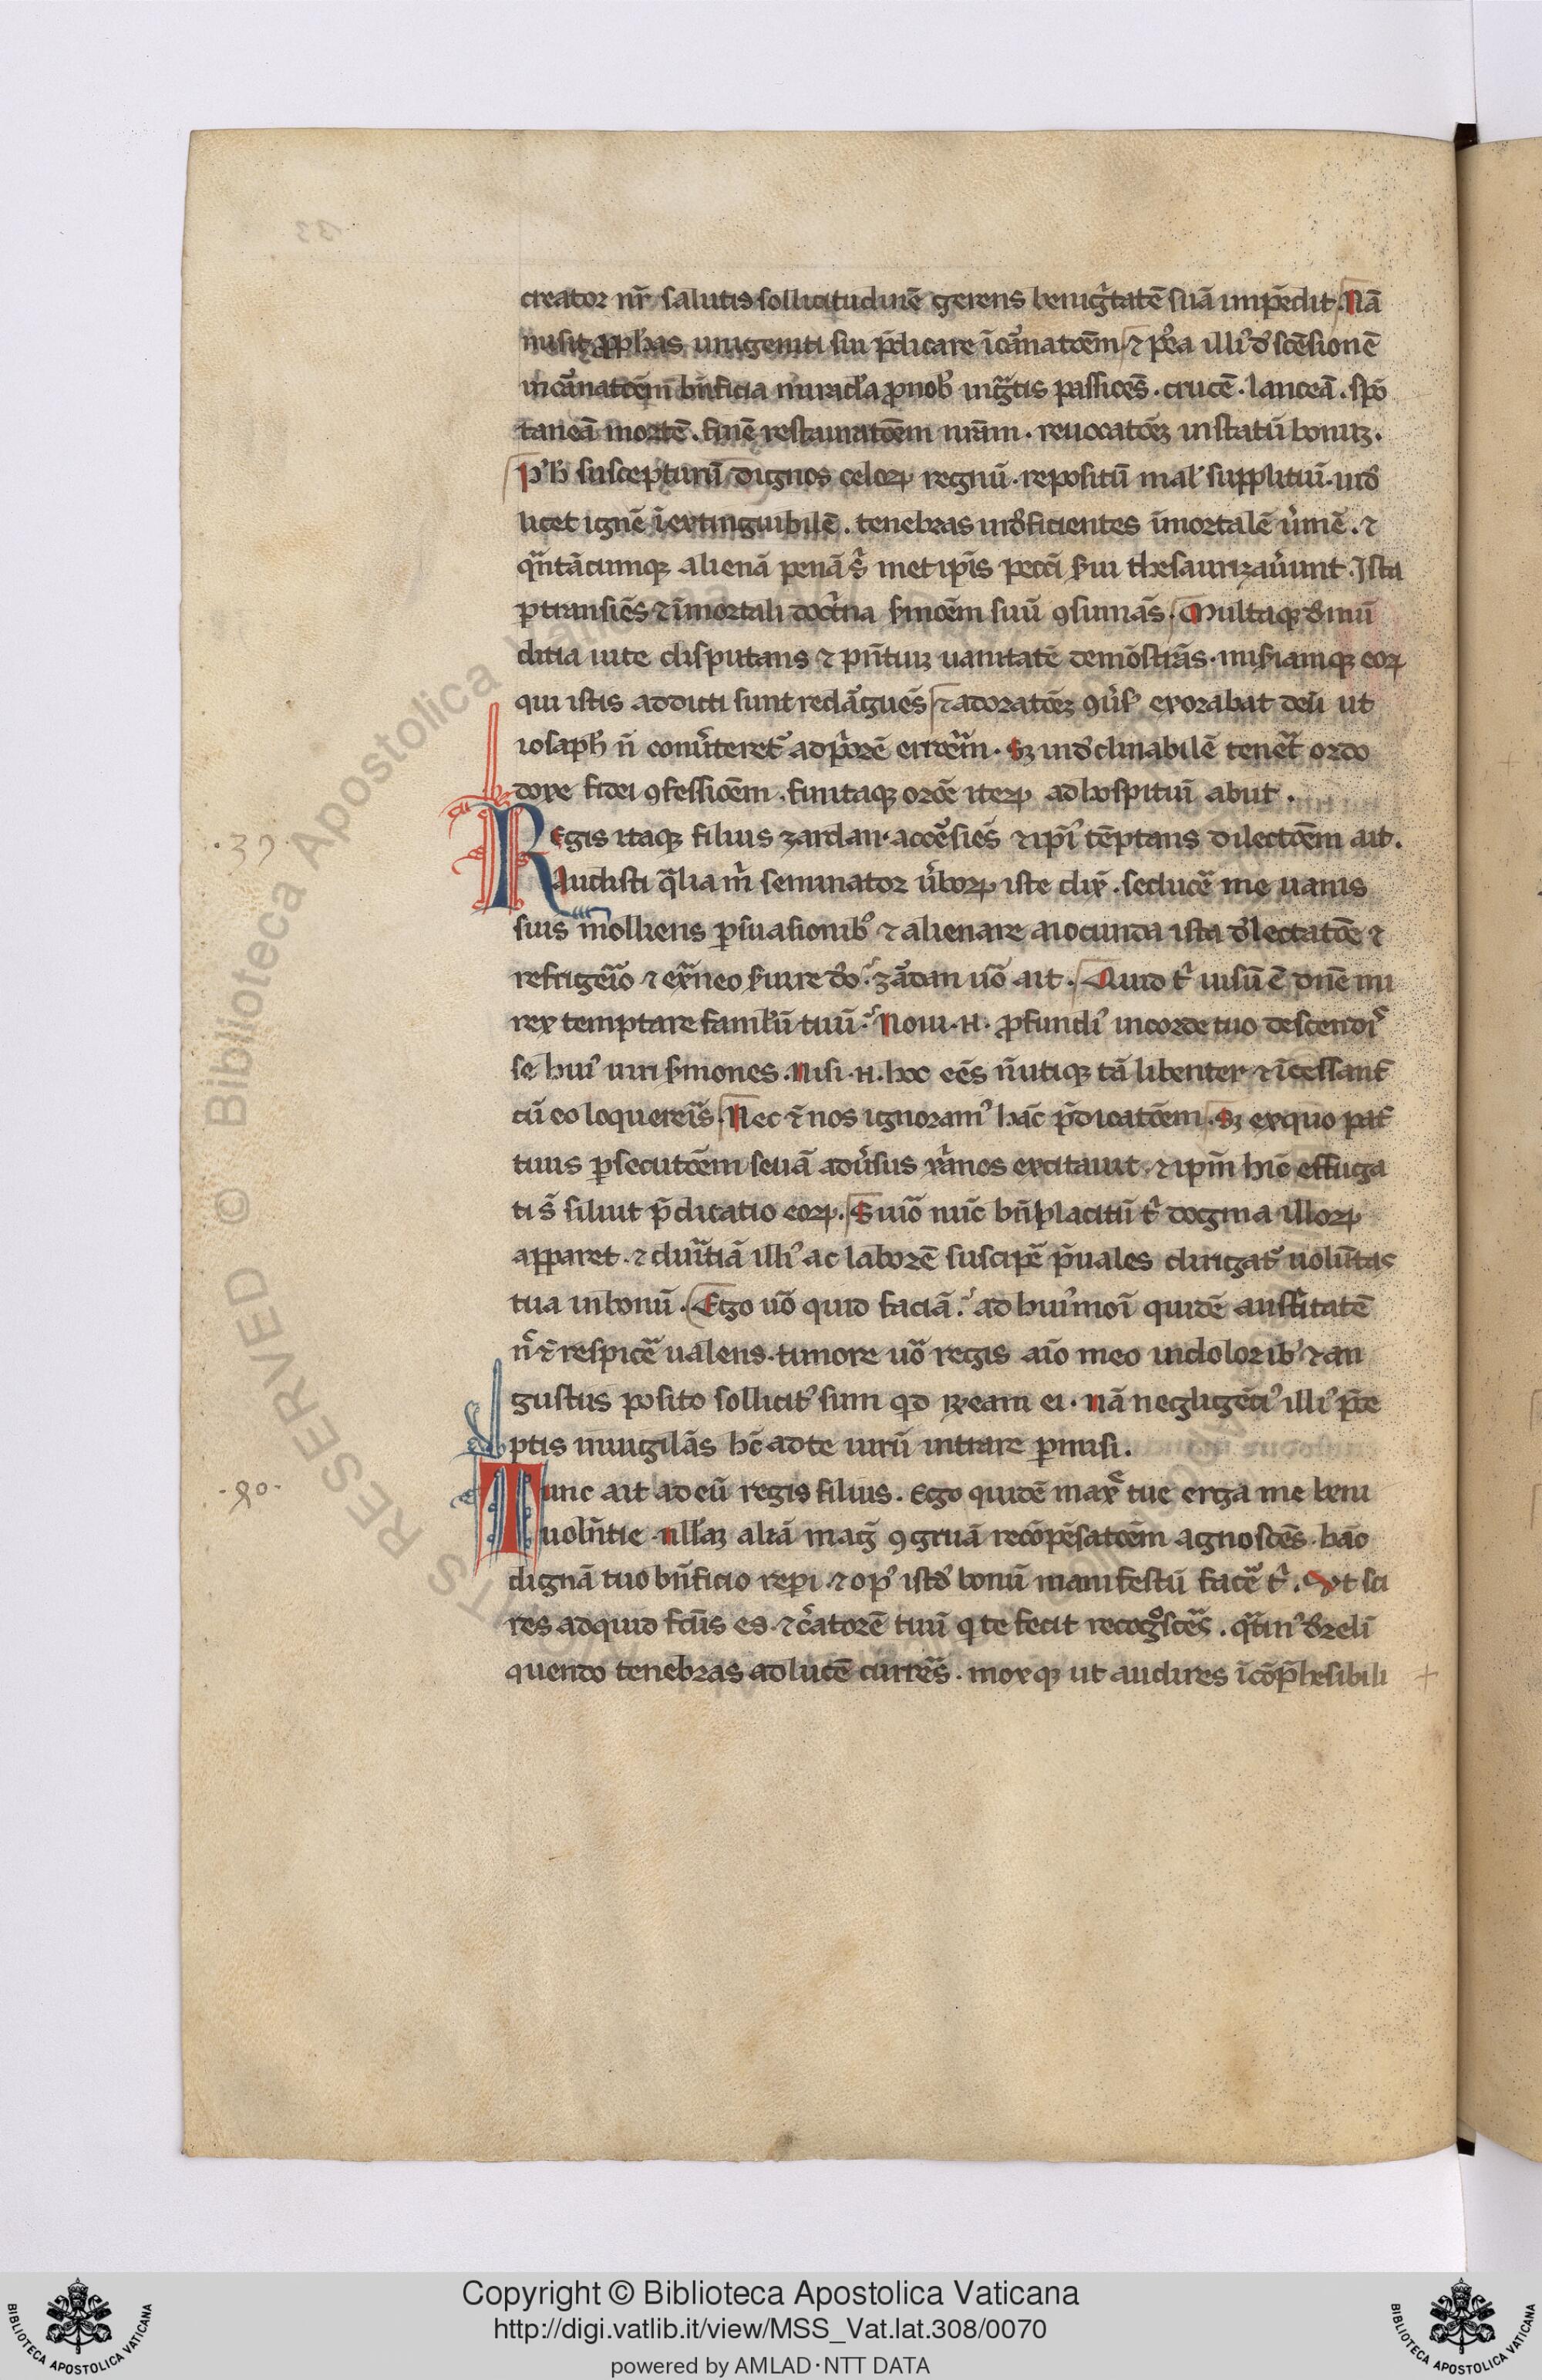 creator nr̄ salutis sollicitudinē gerens benigͥtatē suā impēdit. Nā
misit ꝓph̄as unigeniti sui p̄dicare īcͣnatōem ⁊ pꝰea illiꝰ dꝰscēsionē
incͣnatōem bn̄ficia miracl̓a ꝓ nob̓ ingͣtis passiōes̄. crucē. lanceā. spō
taneā mortē. finē restauratōem nr̄am. reuocatōeꝫ in statū bonuꝫ.
Pꝰ h̓ suscepturū dignos celoꝝ regnū. repositū mal̓ suppliciū. uidꝰ
licet ignē īextinguibilē. tenebras n̄ dꝰficientes īmortalē ūmē. ⁊
qͣntācumqꝫ alienā penā sͥ met ip̄is pecc̄i s̓ui thesaurizaūunt. Ista
ꝑtransiēs ⁊ īmortali doctͥna s̓moēm suū ꝯsumās. Multaqꝫ dꝰ mū
ditia uite disputans ⁊ pn̄tiuꝫ uanitatē demōstrās. mis̓iamqꝫ eoꝝ
qui istis additi sunt redͣguēs ⁊ adoratōeꝫ ꝯūsꝰ exorabat dēū ut
iosaph̓ n̄ conūteretꝰ ad pͥorē errorē̄m. Sꝫ indꝰclinabilē tenēt orto
doxe fidei ꝯfessiōem. finitaqꝫ oroē iteꝝ ad hospitiū abiit.
Regis itaqꝫ filius zardan. accēsiēs ⁊ ip̄iꝰ tēptans dilectōem ait.
.39.
Audisti qͣlia m̄ seminator ūboꝝ iste dix̄. seducē me uanis
suis molliens ꝑsuasionibꝰ ⁊ alienare a iocunda ista dꝰlectatōe ⁊
refrigeͣio ⁊ exͣneo s̓uire dꝰo. zadan uō ait. Quid tͥ uisū ē dn̄e mi
rex temptare famul̓ū tuū. Noui .n. ꝓfundiꝰ in corde tuo descendiꝰ
se huiꝰ uiri s̓mones. nisi .n. hoc eēs n̄ utiqꝫ tā libenter ⁊ īcessant̄
cū eo loquerers̄. Nec .n. nos ignoramꝰ hāc p̄dicatōem. Sꝫ ex quo pat̄
tuus ꝑsecutōem seuā adūsus xͥanos excitauit. ⁊ ip̄m hīc effuga
ti s̄ siliuit p̄dicatio eoꝝ. Si uō nūc bn̄placitū tͥ dogma illoꝝ
apparet. ⁊ duͥtiā illiꝰ ac laborē suscipē p̄uales dirigatꝰ uolūtas
tua in bonū. Ego uō quid faciā. ad huiꝰmoī quidē aust̓itatē
respicē ualens. timore uō regis aīo meo in doloribꝰ ⁊ an
gustiis posito sollicitꝰ sum qd eam ei. nā negligēt̓ illiꝰ p̄ce
ptis inuigilās hc̄ ad te uirū intrare ꝑmisi.
Tunc ait ad eū regis filius. Ego quidē max̄ tue erga me beni
.40.
uolēntie null̓aꝫ aliā mag̓ ꝯgruā recōpēsatōem agnoscēs. hāc
dignā tuo bn̄ficio reperi ⁊ opꝰ istdꝰ bonū manifestū facē tͥ. Vt sci
res ad quid fc̄us es. ⁊ cͥatorē tuū q te fecit recogͦscēs. qͣtinꝰ dꝰreli
quendo tenebras ad lucē currēs. moxqꝫ ut audires īcōp̄hēsibili
Copyright © Biblioteca Apostolica Vaticana
http://digi.vatlib.it/view/MSS_Vat.lat.308/0070
powered by AMLAD·NTT DATA
BIBLIOTECA APOSTOLICA VATICANA
BIBLIOTECA APOSTOLICA VATICANA